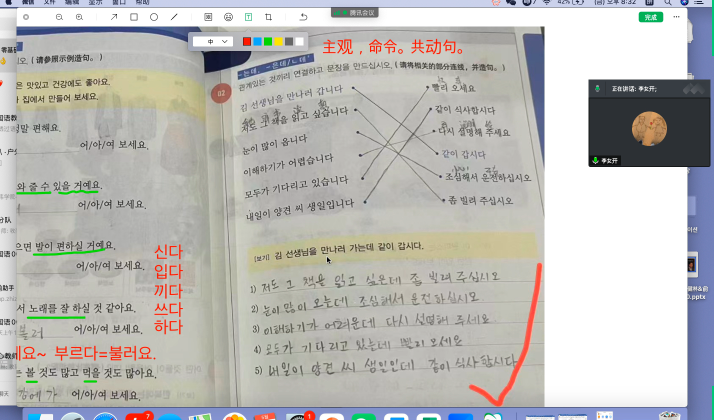 腾讯会议
(금) 오후 8:32
42%
完成
中
主观，命令。共动句。
-는데, -은데/ㄴ데
(请参照示例造句。)
은 맛있고 건강에도 좋아요.
집에서 만들어 보세요.
말 편해요.
어/아/여 보세요.
와 줄 수 있을 거예요.
어/아/여 보세요.
으면 발이 편하실 거예요.
어/아/여 보세요.
서 노래를 잘 하실 것 같아요.
어/아/여 보세요.
세요~ 부르다=불러요.
는 볼 것도 많고 먹을 것도 많아요.
어/아/여 보세요.
신다
입다
끼다
쓰다
하다
02
관계있는 것끼리 연결하고 문장을 만드십시오. (请将相关的部分连线，并造句。)
김 선생님을 만나러 갑니다
저도 그 책을 읽고 싶습니다
눈이 많이 옵니다
이해하기가 어렵습니다
모두가 기다리고 있습니다
내일이 양견 씨 생일입니다
빨리 오세요
같이 식사합시다
다시 설명해 주세요
같이 갑시다
조심해서 운전하십시오
좀 빌려 주십시오
[보기] 김 선생님을 만나러 가는데 같이 갑시다.
1) 저도 그 책을 읽고 싶은데 좀 빌려 주십시오
2) 눈이 많이 오는데 조심해서 운전하십시오
3) 이해하기가 어려운데 다시 설명해 주세요
4) 모두가 기다리고 있는데 빨리 오세요
5) 내일이 양견 씨 생일인데 같이 식사합시다
正在讲话: 李女开
李女开